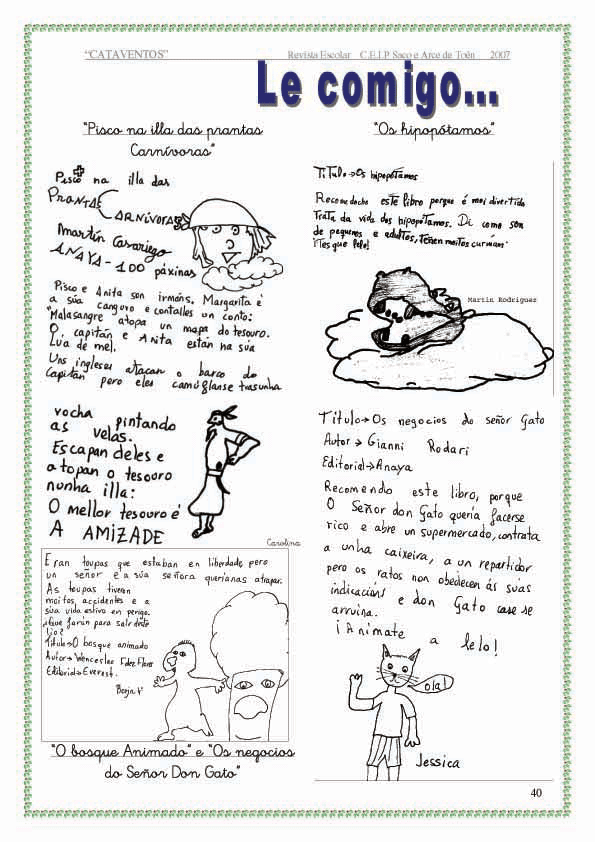 “CATAVENTOS” Revista Escolar C.E.I.P Saco e Arce de Toén 2007
Le comigo...
“Pisco na illa das prantas
Carnívoras”
Pisco na illa das
PRANTAS CARNÍVORAS
Martín Casariego
ANAYA - 100 páxinas
Pisco e Anita son irmáns. Margarita é
a súa canguro e contalles un conto:
"Malasangre atopa un mapa do tesouro.
O capitán e Anita están na súa
Lua de mel.
Uns ingleses atacan o barco do
Capitán pero eles camúflanse trasunha
vocha pintando
as velas.
Escapan deles e
atopan o tesouro
nunha illa:
O mellor tesouro é
A AMIZADE
Carolina
Eran toupas que estaban en liberdade pero
un señor e a súa señora querianas atrapar.
As toupas tiveron
moitos accidentes e a
súa vida estivo en perigo.
¿Que farán para salir deste
lío?
Título→O bosque animado
Autor→Wenceslao Fdez Florez
Editorial→Everest.
Borja V
“O bosque Animado” e “Os negocios
do Señor Don Gato”
“Os hipopótamos”
Título→Os hipopótamos
Recomendacho este libro porque é moi divertido
Trata da vida dos hipopótamos. Di como son
de pequenos e adultos, teñen moitos curmáns
¡Tes que lelo!
Martín Rodríguez
Título→Os negocios do señor Gato
Autor→Gianni Rodari
Editorial→Anaya
Recomendo este libro, porque
O Señor don Gato quería facerse
rico e abre un supermercado, contrata
a unha caixeira, a un repartidor
pero os ratos non obedecen ás súas
indicacións e don Gato case se
arruina.
¡Anímate a lelo!
ola!
Jessica
40